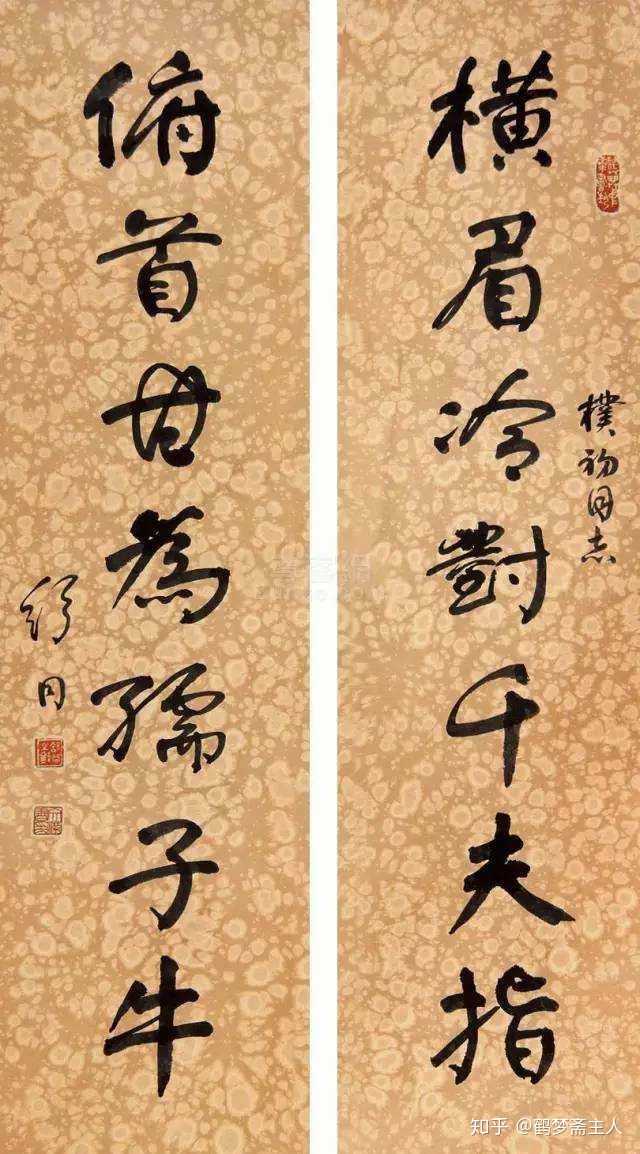 樸初同志
橫眉冷對千夫指
俯首甘為孺子牛
舒同
知乎 @鹤梦斋主人